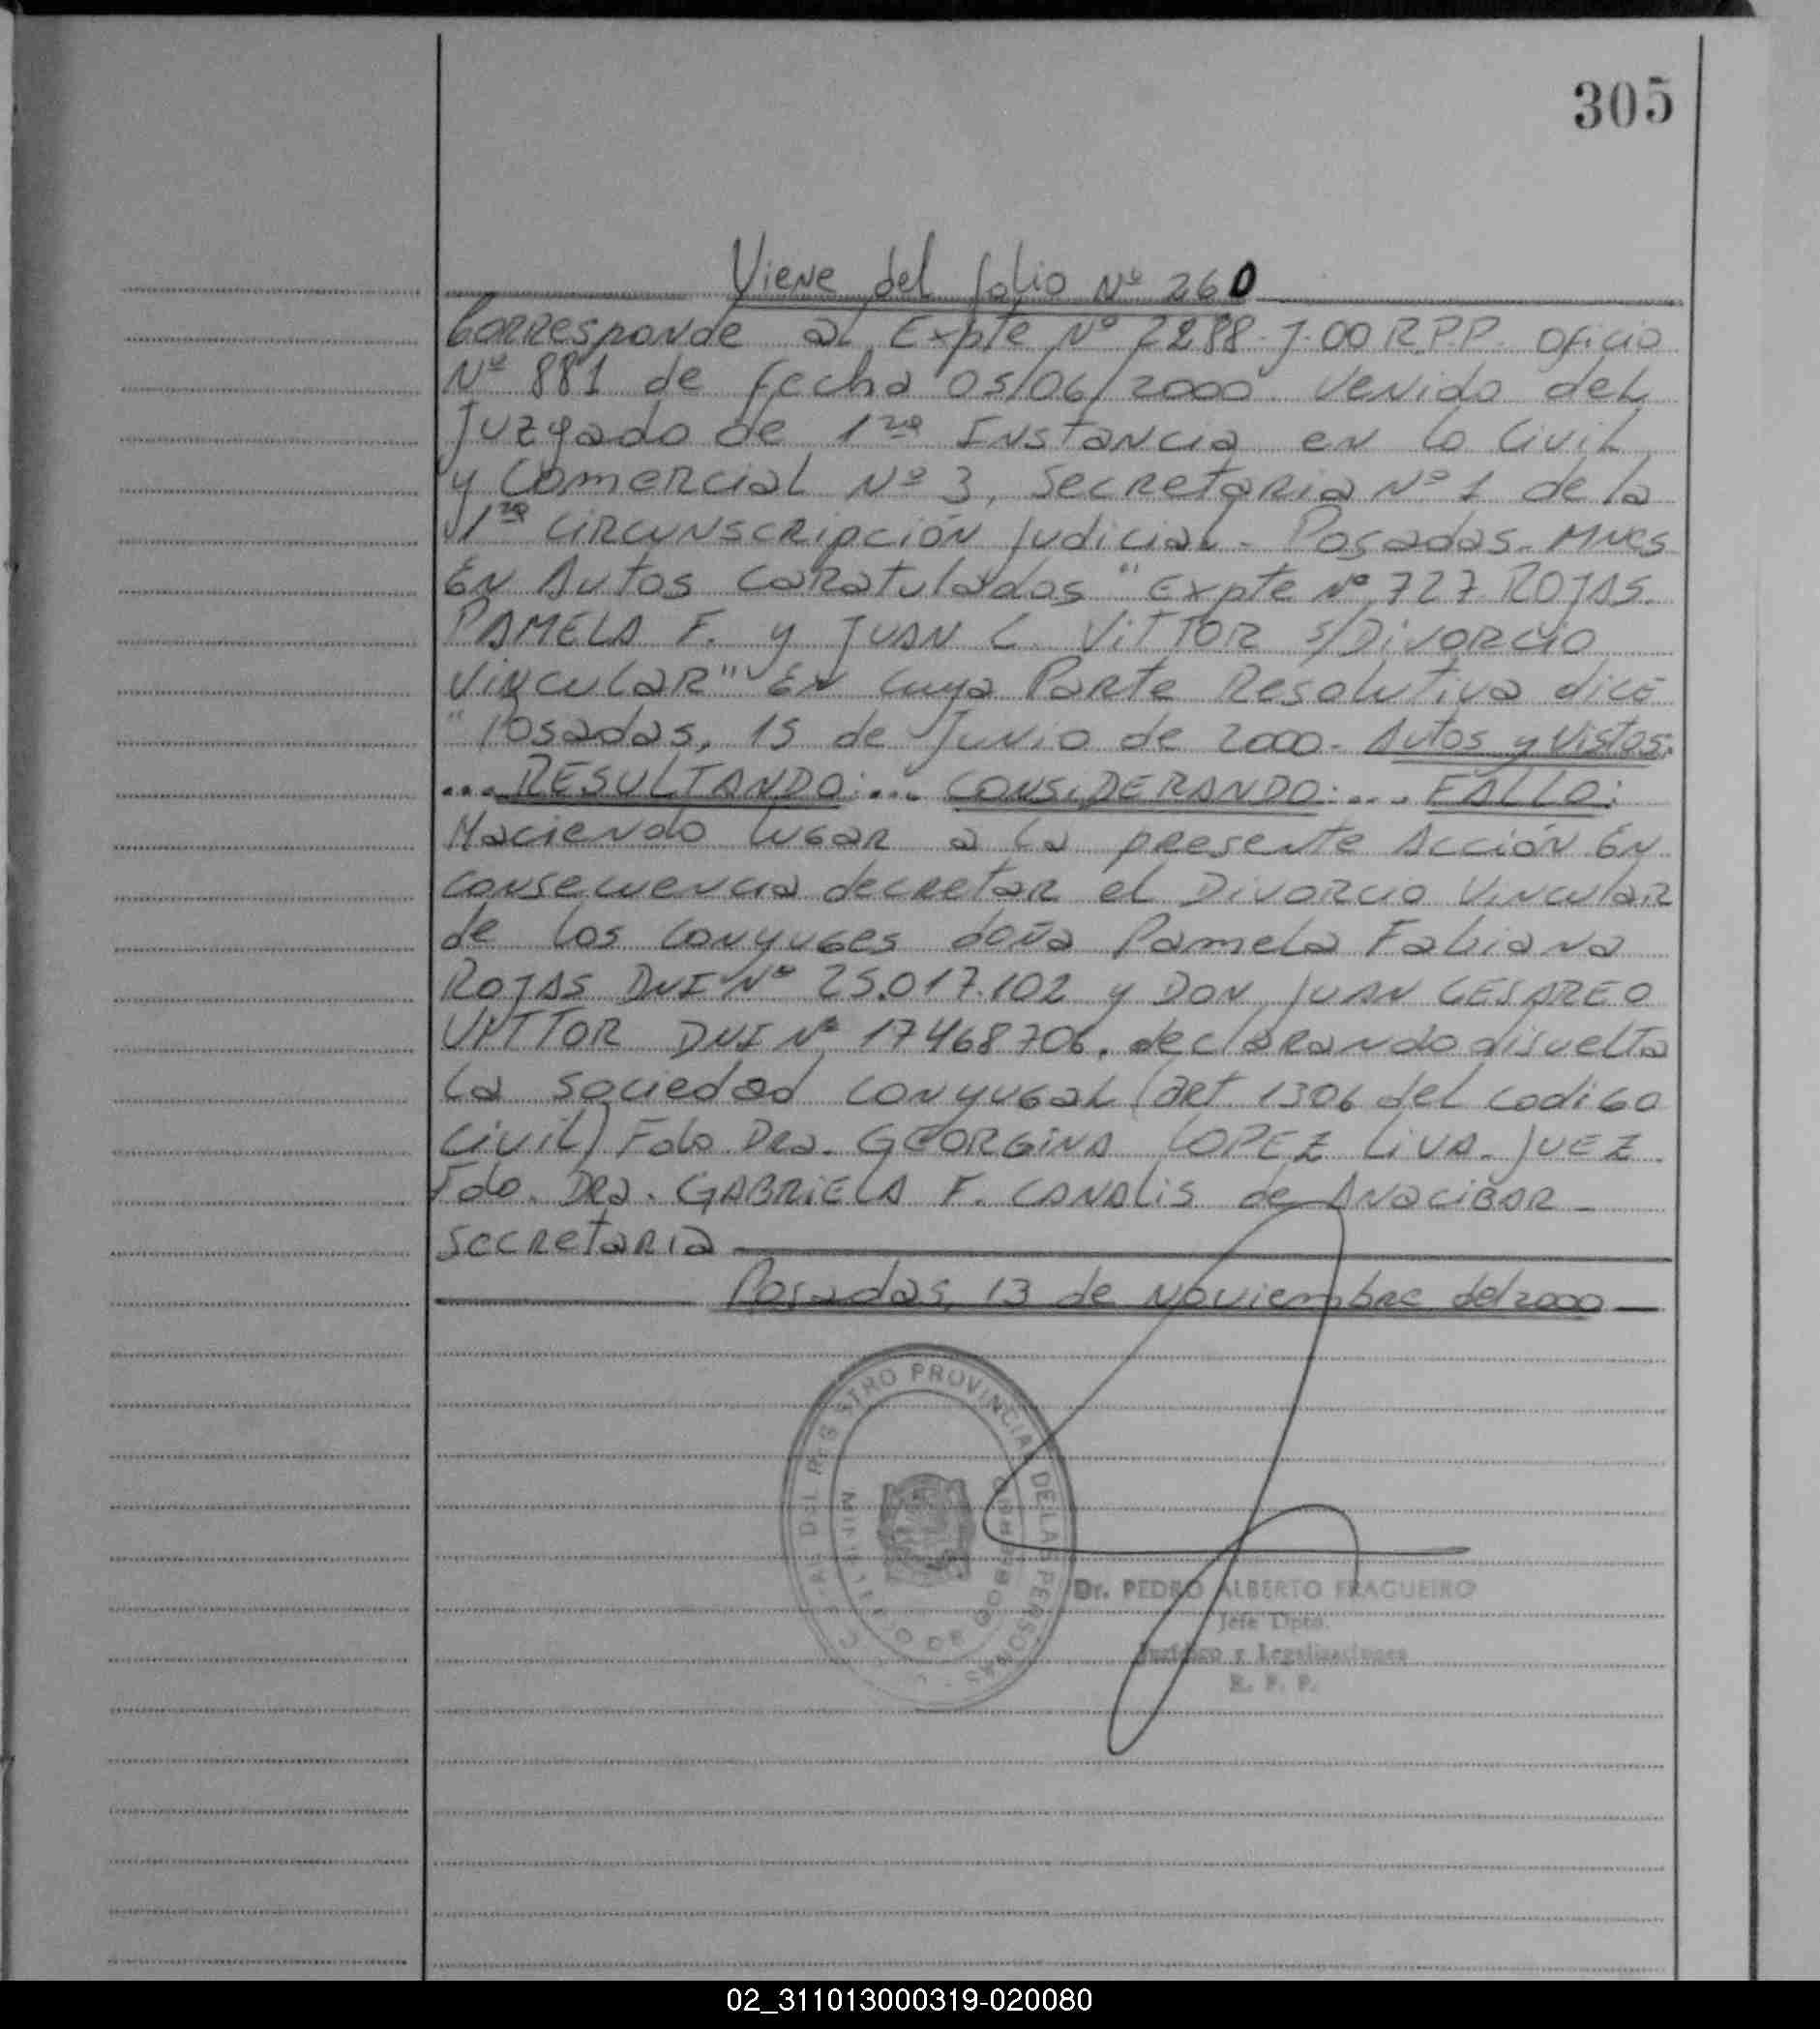 305
Viene del folio Nº 260
Corresponde al Expte Nº 7288-J-00 R.P.P. oficio
Nº 881 de fecha 05/06/2000 venido del
Juzgado de 1ra Instancia en lo Civil
y Comercial Nº 3, Secretaria Nº 1 de la
1ra Circunscripción Judicial. Posadas. Mnes
En Autos Caratulados "Expte Nº 727 ROJAS
PAMELA F. y JUAN C. VITTOR s/Divorcio
Vincular" En Cuya Parte Resolutiva dice
"Posadas, 15 de Junio de 2000. Autos y Vistos:
... RESULTANDO:... CONSIDERANDO:... FALLO:
Haciendo lugar a la presente Acción En
consecuencia decretar el Divorcio Vincular
de los Conyuges doña Pamela Fabiana
ROJAS DNI Nº 25.017.102 y DON JUAN CESAREO
VITTOR DNI Nº 17468706. declarando disuelta
la sociedad conyugal (art 1306 del codigo
civil) Fdo Dra. GEORGINA LOPEZ LIVA. JUEZ.
Fdo. Dra. GABRIELA F. CANALIS de ANACIBAR -
secretaria
Posadas, 13 de Noviembre del 2000
REGISTRO PROVINCIAL DE LAS PERSONAS
MINISTERIO DE GOBIERNO
Dr. PEDRO ALBERTO FRAGUEIRO
Jefe Dpto.
Jurídico y Legalizaciones
R. P. P.
02_311013000319-020080